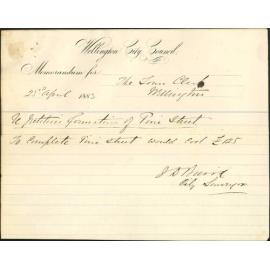 Wellington City Council.
Memorandum for
The Town Clerk
Wellington
23rd April 1883
Re Petition formation of Pirie Street
To Complete Pirie Street would cost £125
J D Baird
City Surveyor